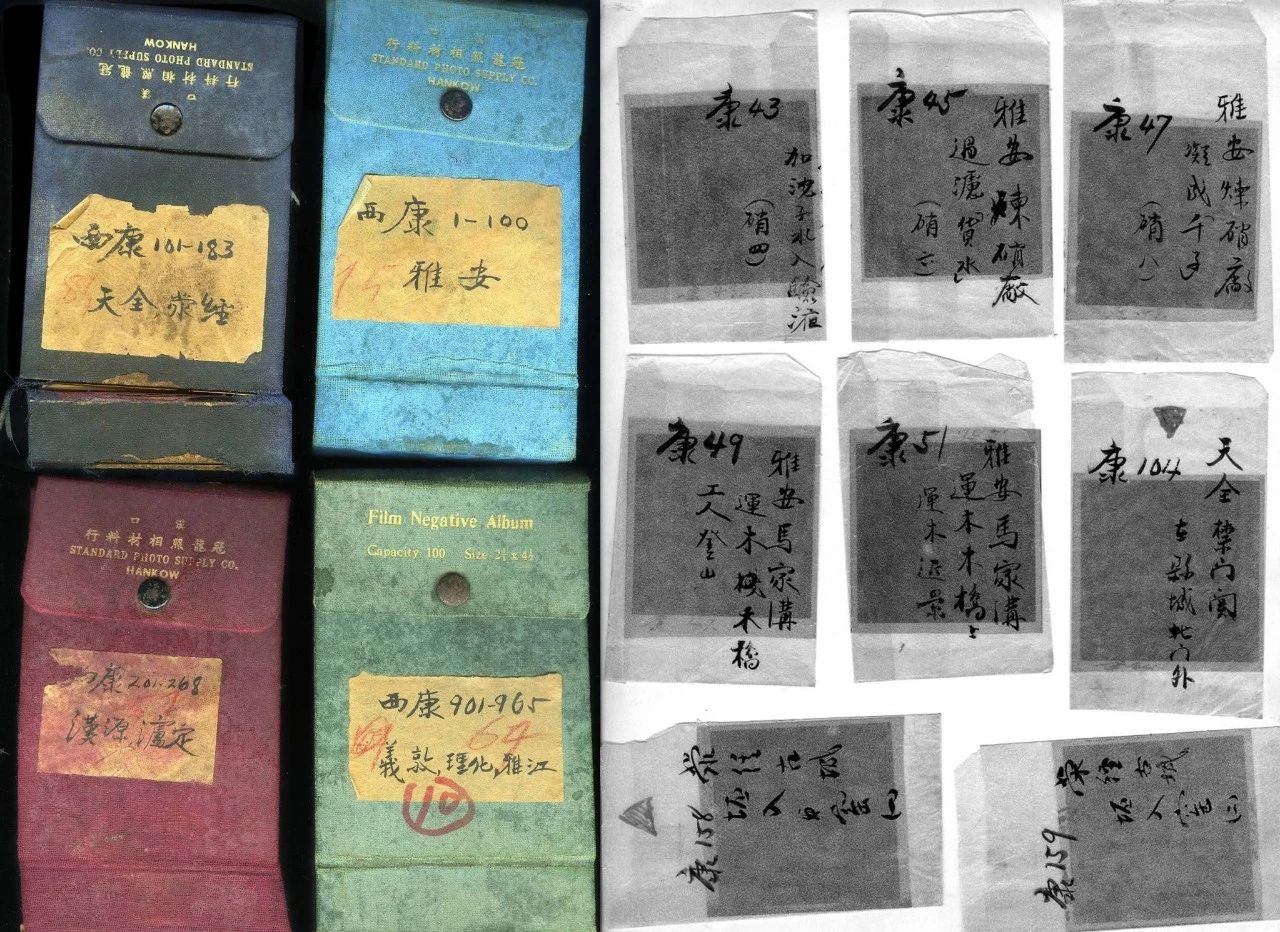 漢口
冠龍照相材料行
STANDARD PHOTO SUPPLY CO.
HANKOW
西康 101-183
天全.滎經
漢口
冠龍照相材料行
STANDARD PHOTO SUPPLY CO.
HANKOW
西康 1-100
75
雅安
漢口
冠龍照相材料行
STANDARD PHOTO SUPPLY CO.
HANKOW
康 201-268
漢源,瀘定
Film Negative Album
Capacity 100 Size 2¼ x 4½
西康 901-965
64
義敦,理化,雅江
40
康 43
(硝四)
康 45
雅安煉硝廠
過濾
(硝六)
康 47
雅安煉硝廠
凝成
(硝八)
康 49
雅安馬家溝
運木機木橋
工人登山
康 51
雅安馬家溝
運木木橋上
運木遠景
康 104
天全禁門關
在縣城北門外
康 158
滎經古城
康 159
滎經古城